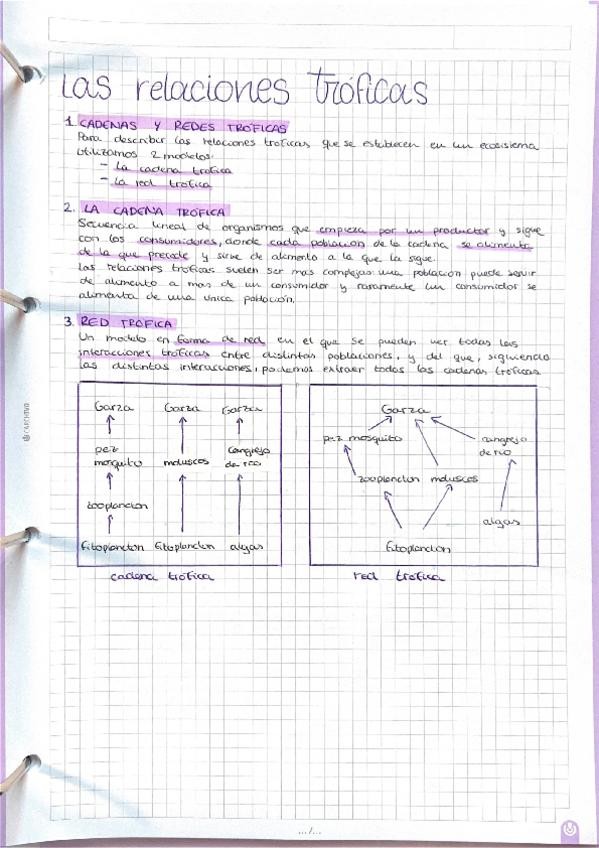 Las relaciones tróficas
1. CADENAS Y REDES TRÓFICAS
Para describir las relaciones tróficas que se establecen en un ecosistema
utilizamos 2 modelos:
- La cadena trófica
- La red trófica
2. LA CADENA TRÓFICA
Secuencia lineal de organismos que empieza por un productor y sigue
con los consumidores, donde cada población de la cadena se alimenta
de la que precede y sirve de alimento a la que la sigue.
Las relaciones tróficas suelen ser más complejas: una población puede servir
de alimento a más de un consumidor y raramente un consumidor se
alimenta de una única población.
3. RED TRÓFICA
Un modelo en forma de red en el que se pueden ver todas las
interacciones tróficas entre distintas poblaciones, y del que, siguiendo
las distintas interacciones, podemos extraer todas las cadenas tróficas
Garza Garza Garza
pez mosquito moluscos cangrejo de río
zooplancton
fitoplancton fitoplancton algas
cadena trófica
Garza
pez mosquito cangrejo de río
zooplancton moluscos
algas
fitoplancton
red trófica
.../...